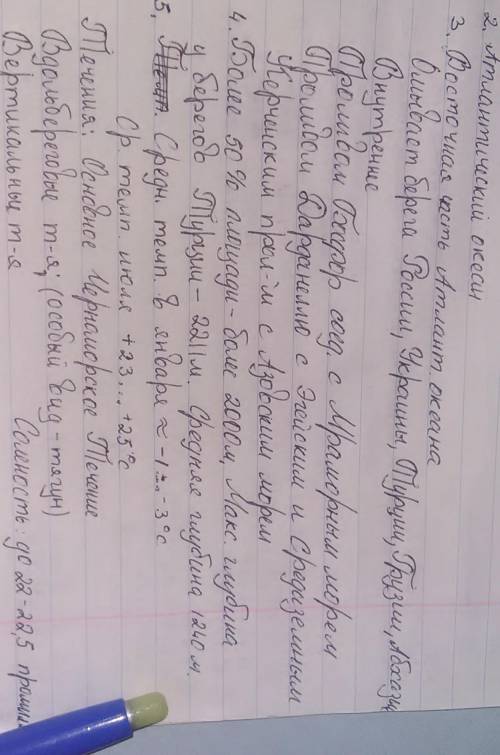 2. Атлантический океан
3. Восточная часть Атлант. океана
Омывает берега России, Украины, Турции, Грузии, Абхазии
Внутренне
Проливом Босфор соед. с Мраморным морем
Проливом Дарданеллю с Эгейским и Средиземным
Керченским прол-м с Азовским морем
4. Более 50% площади - более 2000м, Макс. глубина
у берегов Турции - 2211м. Средняя глубина 1240м.
5. Средн. темп в январе ≈ -1... -3°С
Ср темп. июля +23... +25°С
Течения: Основное Черноморское Течение
Вдольбереговые т-я; (особый вид - тягун)
Вертикальные т-я Соленость: до 22-22,5 промил